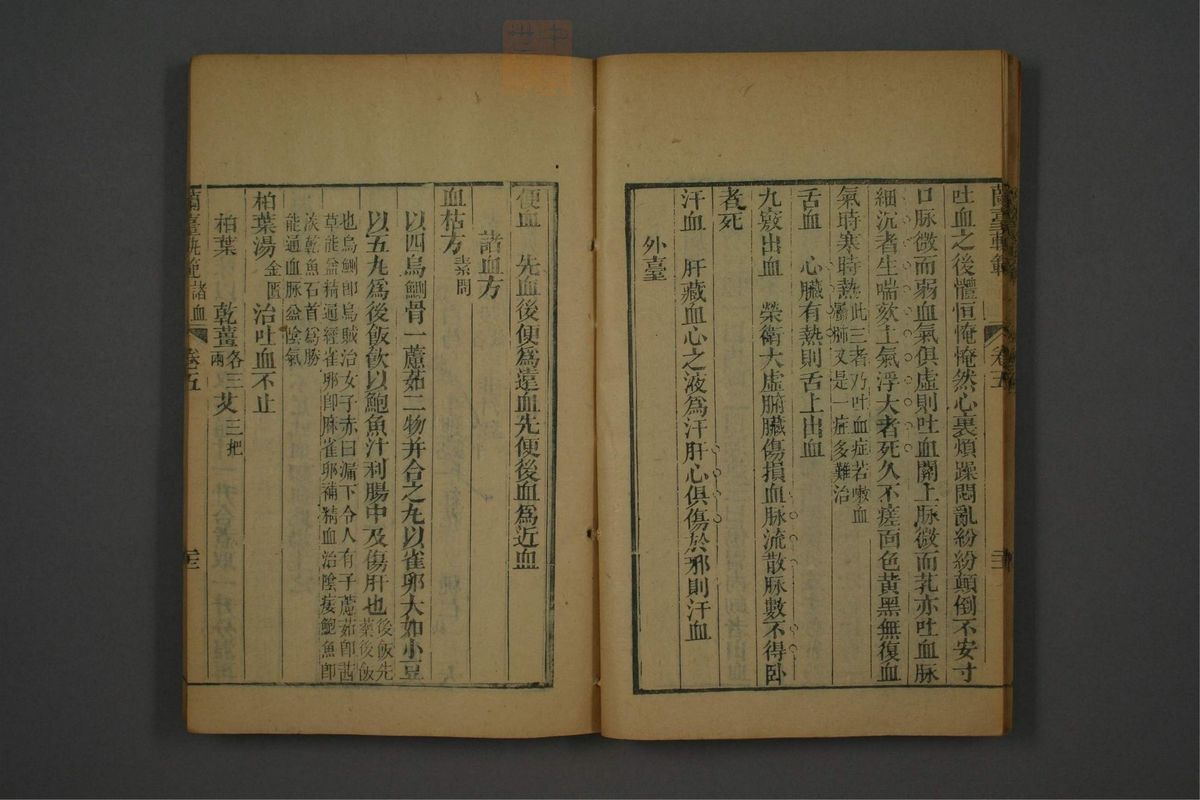 蘭臺軌範
卷五
吐血之後體恒俺俺然心裏煩躁悶亂紛紛顛倒不安寸
口脉微而弱血氣俱虛則吐血關上脉微而芤亦吐血脉
細沉者生喘欬上氣浮大者死久不瘥面色黃黑無復血
氣時寒時熱此三者乃吐血症若嗽血屬肺又是一症多難治
舌血　心臟有熱則舌上出血
九竅出血　榮衛大虛腑臟傷損血脉流散脉數不得卧
者死
汗血　肝藏血心之液爲汗肝心俱傷於邪則汗血
外臺
便血　先血後便爲遠血先便後血爲近血
諸血方
血枯方素問
以四烏鰂骨一藘茹二物并合之丸以雀卵大如小豆
以五丸爲後飯飲以鮑魚汁利腸中及傷肝也後飯先藥後飯
也烏鰂卽烏賊治女子赤白漏下令人有子藘茹卽茜
草能益精通經雀卵卽麻雀卵補精血治陰痿鮑魚卽
淡乾魚石首爲勝
能通血脉益陰氣
柏葉湯金匱　治吐血不止
柏葉　乾薑各三兩　艾三把
蘭臺軌範　諸血
卷五